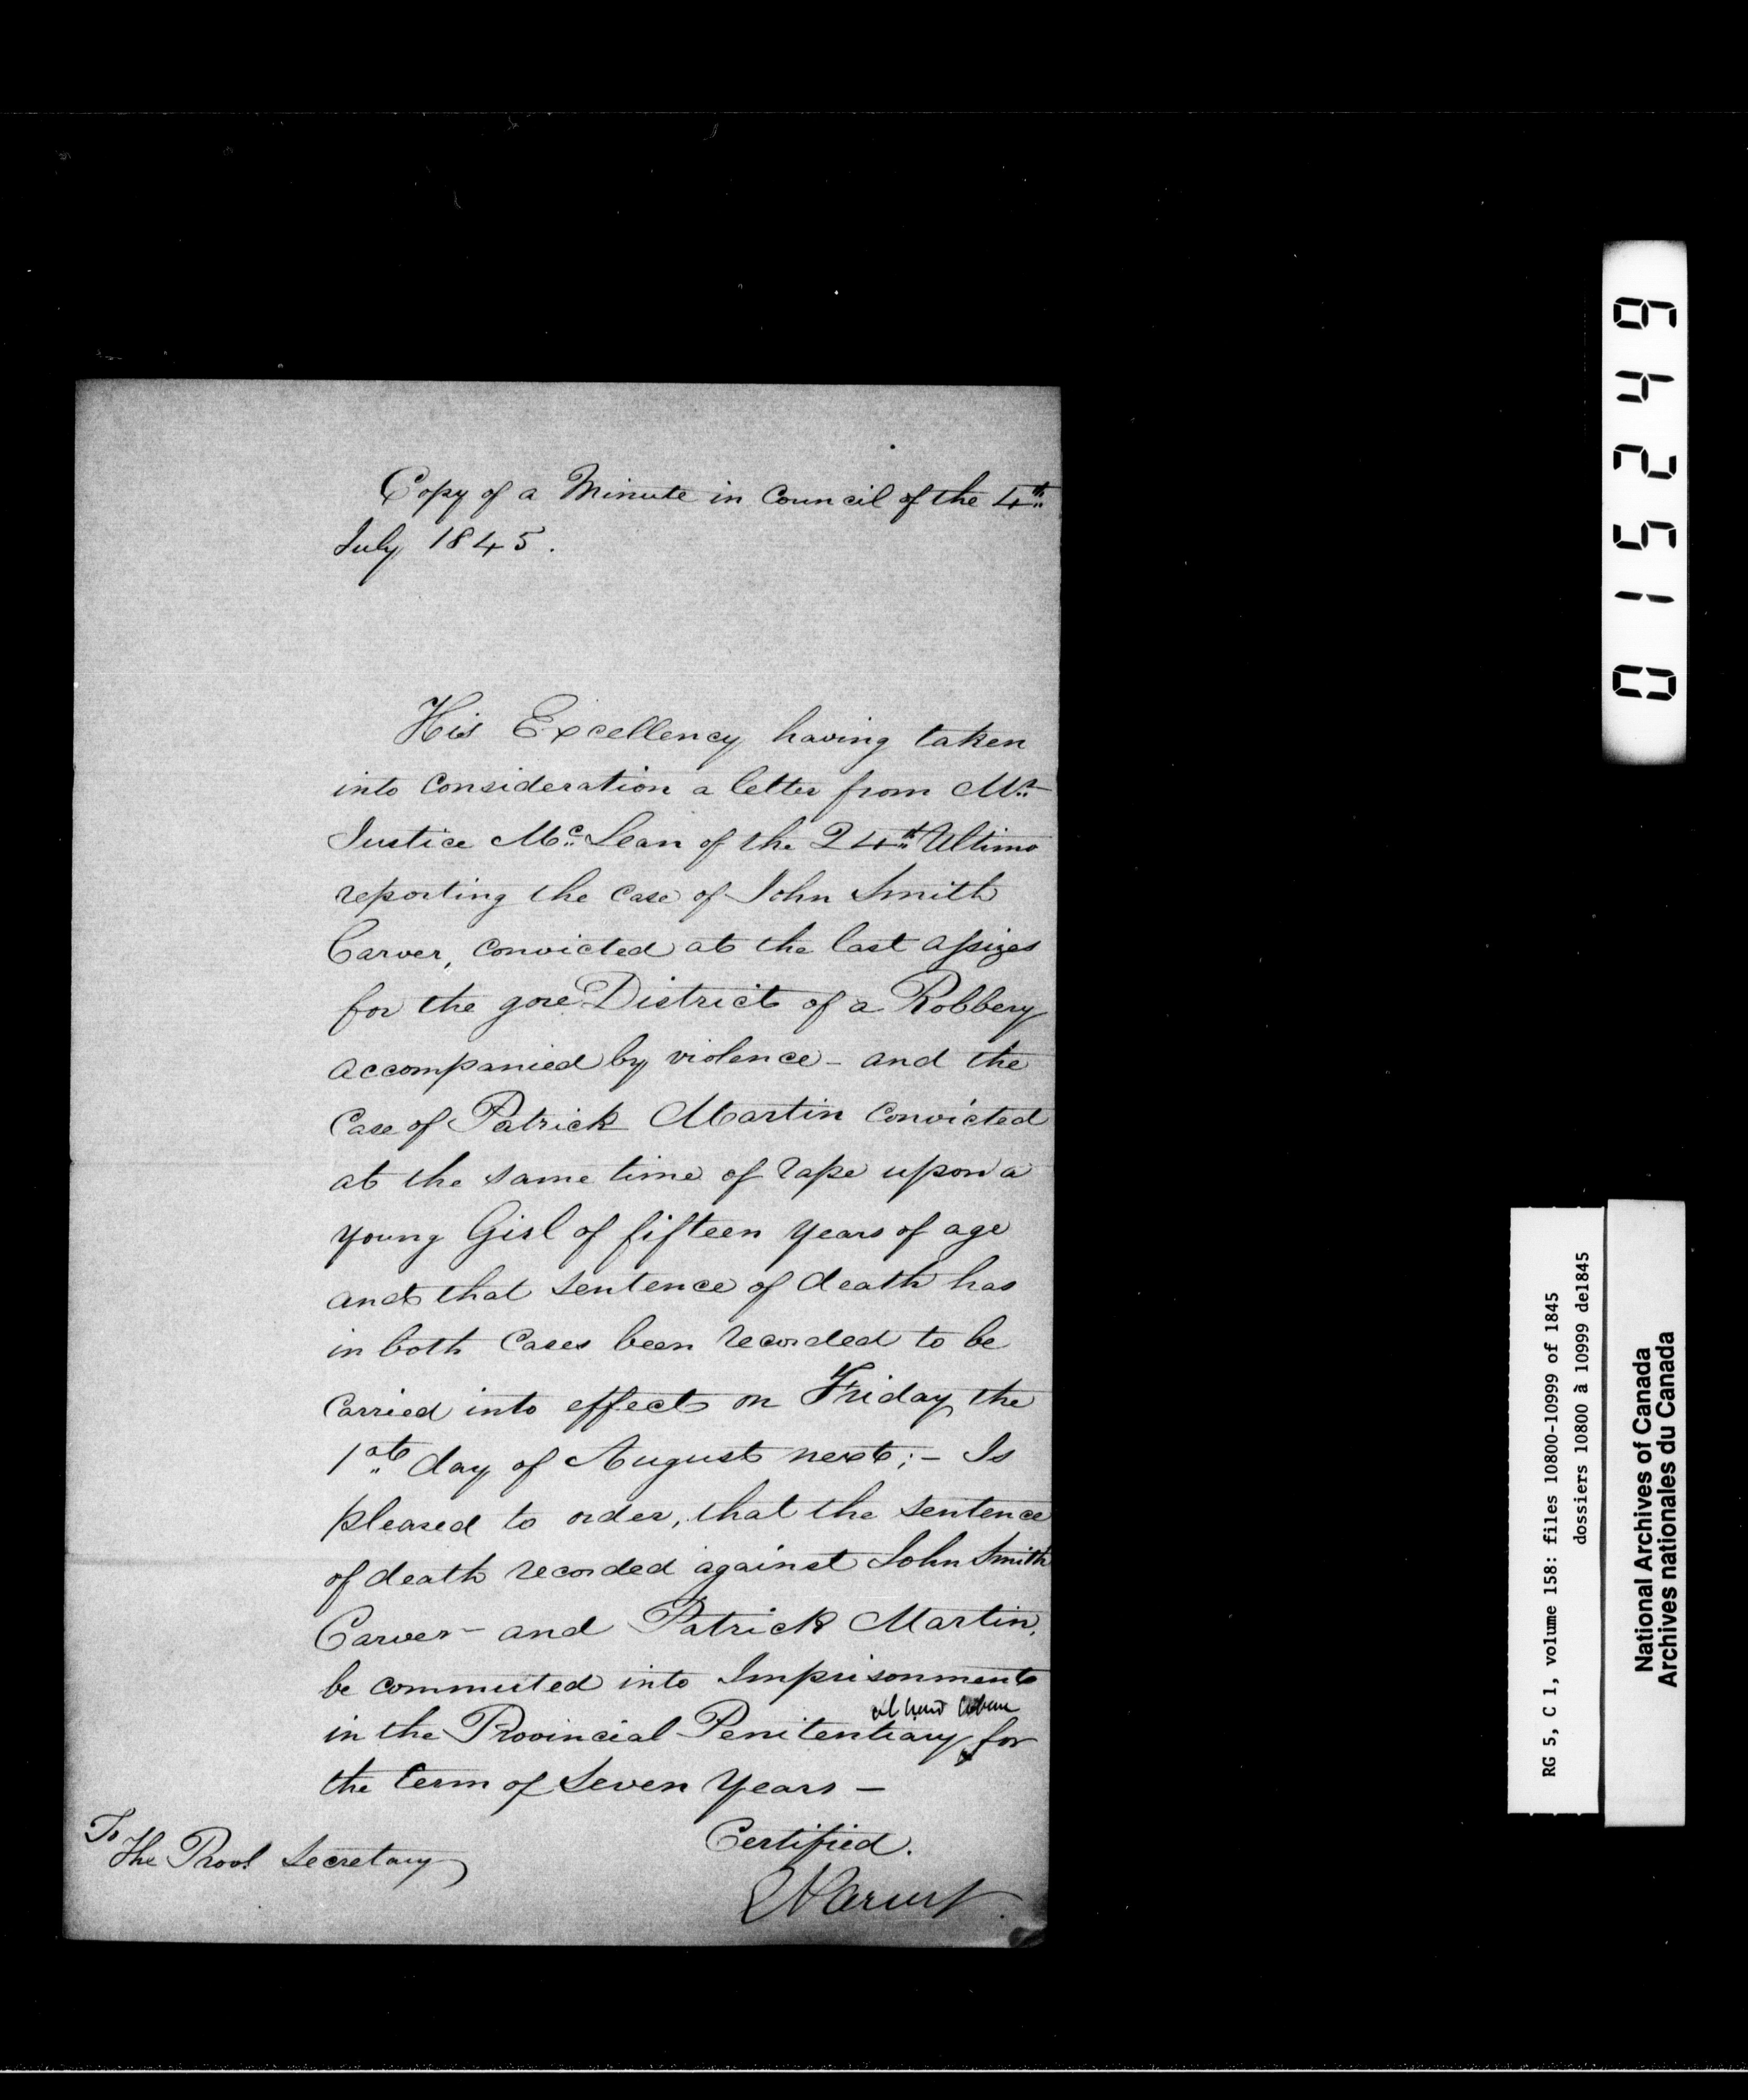 Copy of a Minute in Council of the 4th
July 1845.
His Excellency having taken
into Consideration a letter from Mr
Justice McLean of the 24th Ultimo
reporting the Case of John Smith
Carver, Convicted at the last Assizes
for the gore District of a Robbery
accompanied by violence - and the
Case of Patrick Martin Convicted
at the same time of rape upon a
young Girl of fifteen years of age
and that sentence of death has
in both Cases been recorded to be
Carried into effect on Friday the
1st day of August next; - Is
pleased to order, that the sentence
of death recorded against John Smith
Carver - and Patrick Martin,
be commuted into Imprisonment
at hard labour
in the Provincial Penitentiary for
the term of Seven Years -
Certified.
To
The Provl Secretary
649251 0
RG 5, C 1, volume 158: files 10800-10999 of 1845
dossiers 10800 à 10999 de1845
National Archives of Canada
Archives nationales du Canada